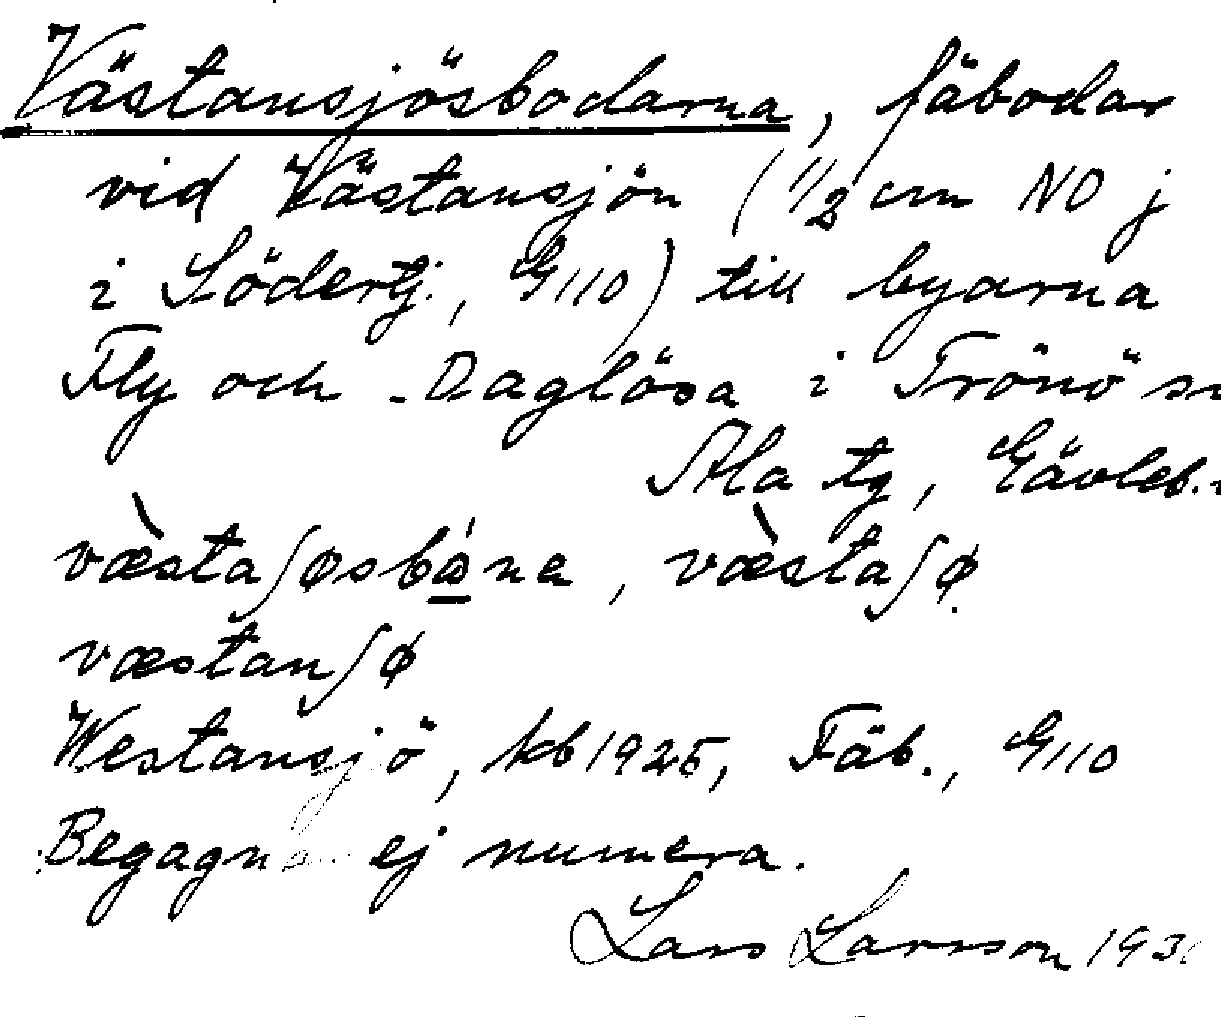 Västansjösbodarna, fäbodar
vid Västansjön (1/2 cm NO j
i Södertj., G110) till byarna
Fly och Daglösa i Trönö sn
Ala tg, Gävleb.
væ̀staʃøsbɷ́na, væ̀staʃø
væstanʃø
Westansjö, kb 1925, Fäb., G110
Begagnas ej numera.
Lars Larsson 193